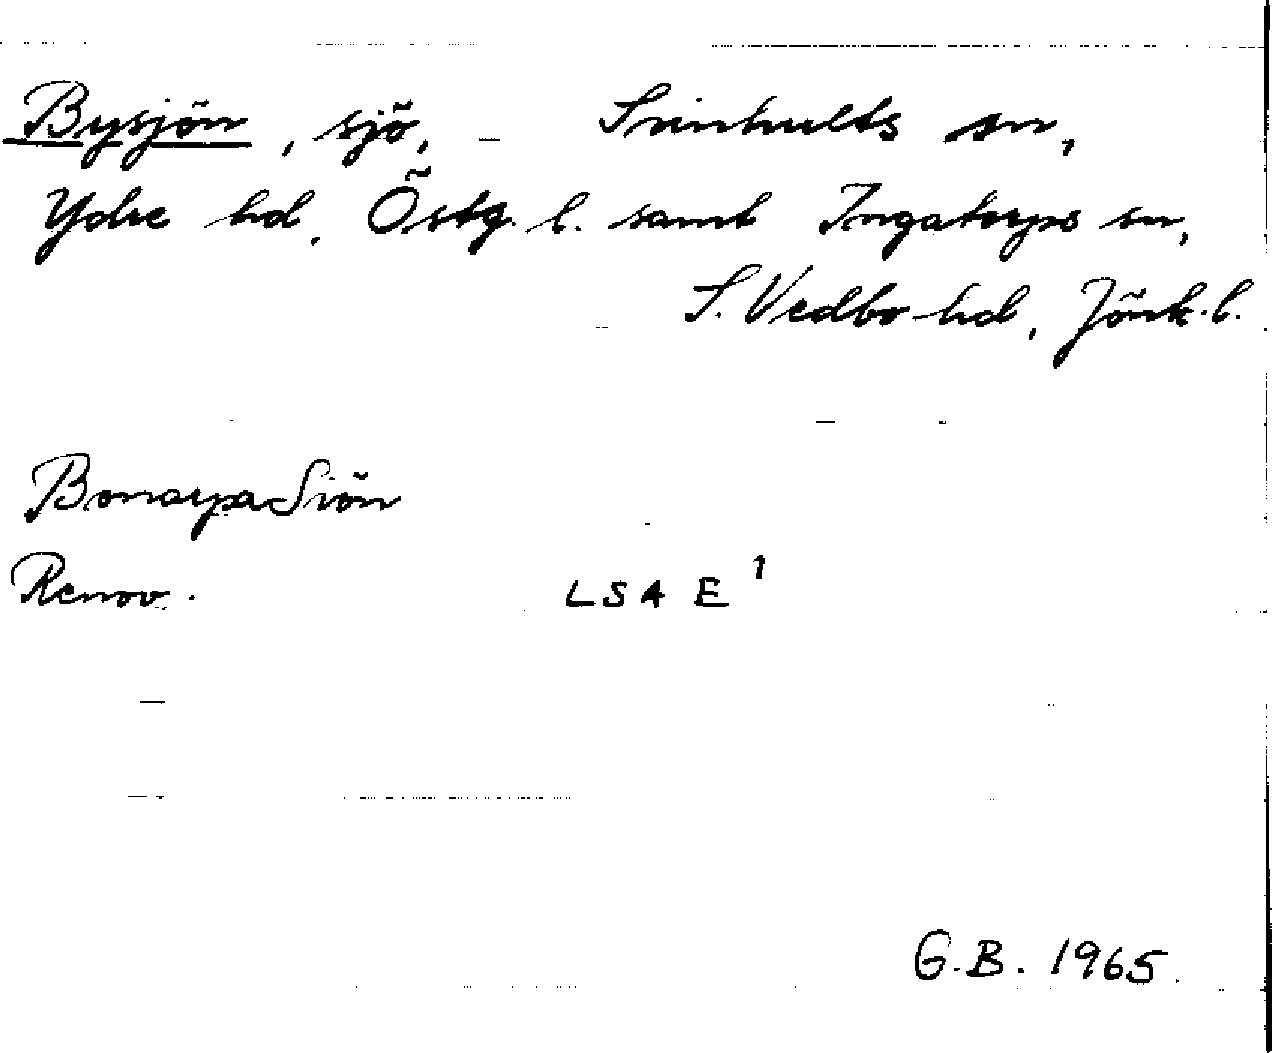 Bysjön, sjö, - Svinhults sn,
Ydre hd, Östg. l. samt Ingatorps sn,
S. Vedbo hd, Jönk. l.
Bonarpa Siön
Renov. LSA E 1
G.B. 1965.